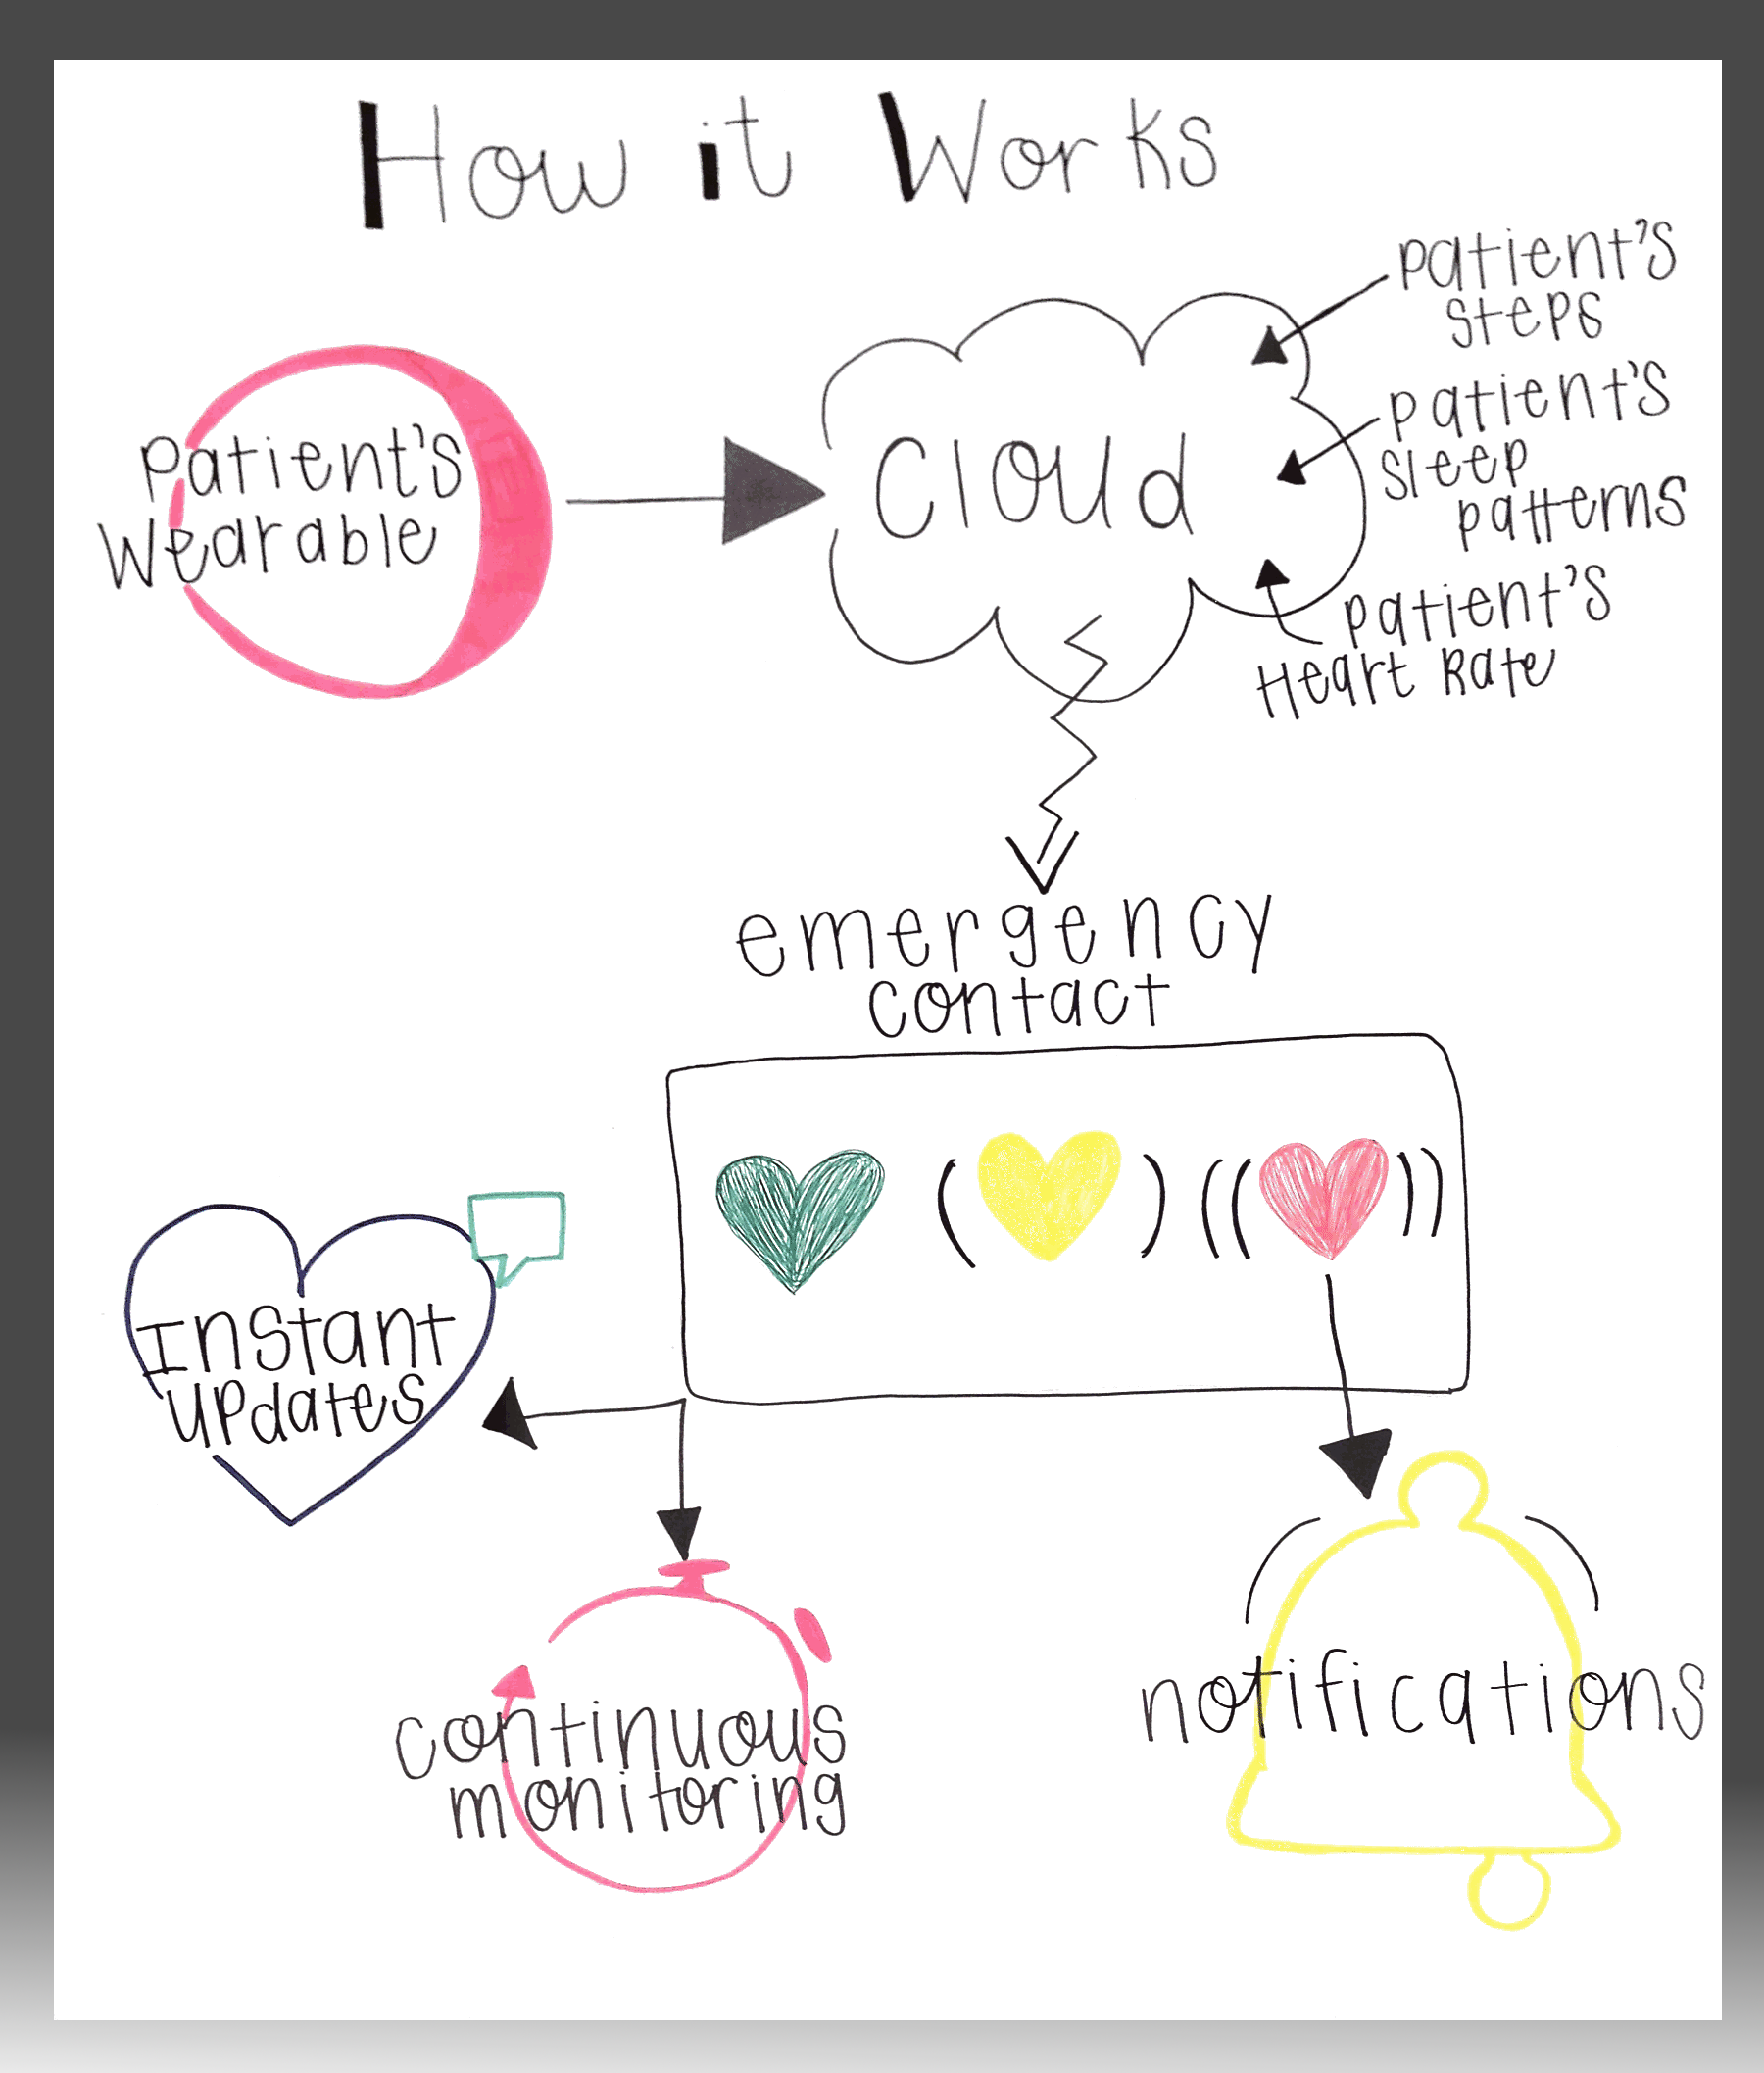 How it Works
patient's
steps
patient's
wearable
cloud
patient's
sleep
patterns
patient's
Heart Rate
emergency
contact
Instant
updates
continuous
monitoring
notifications